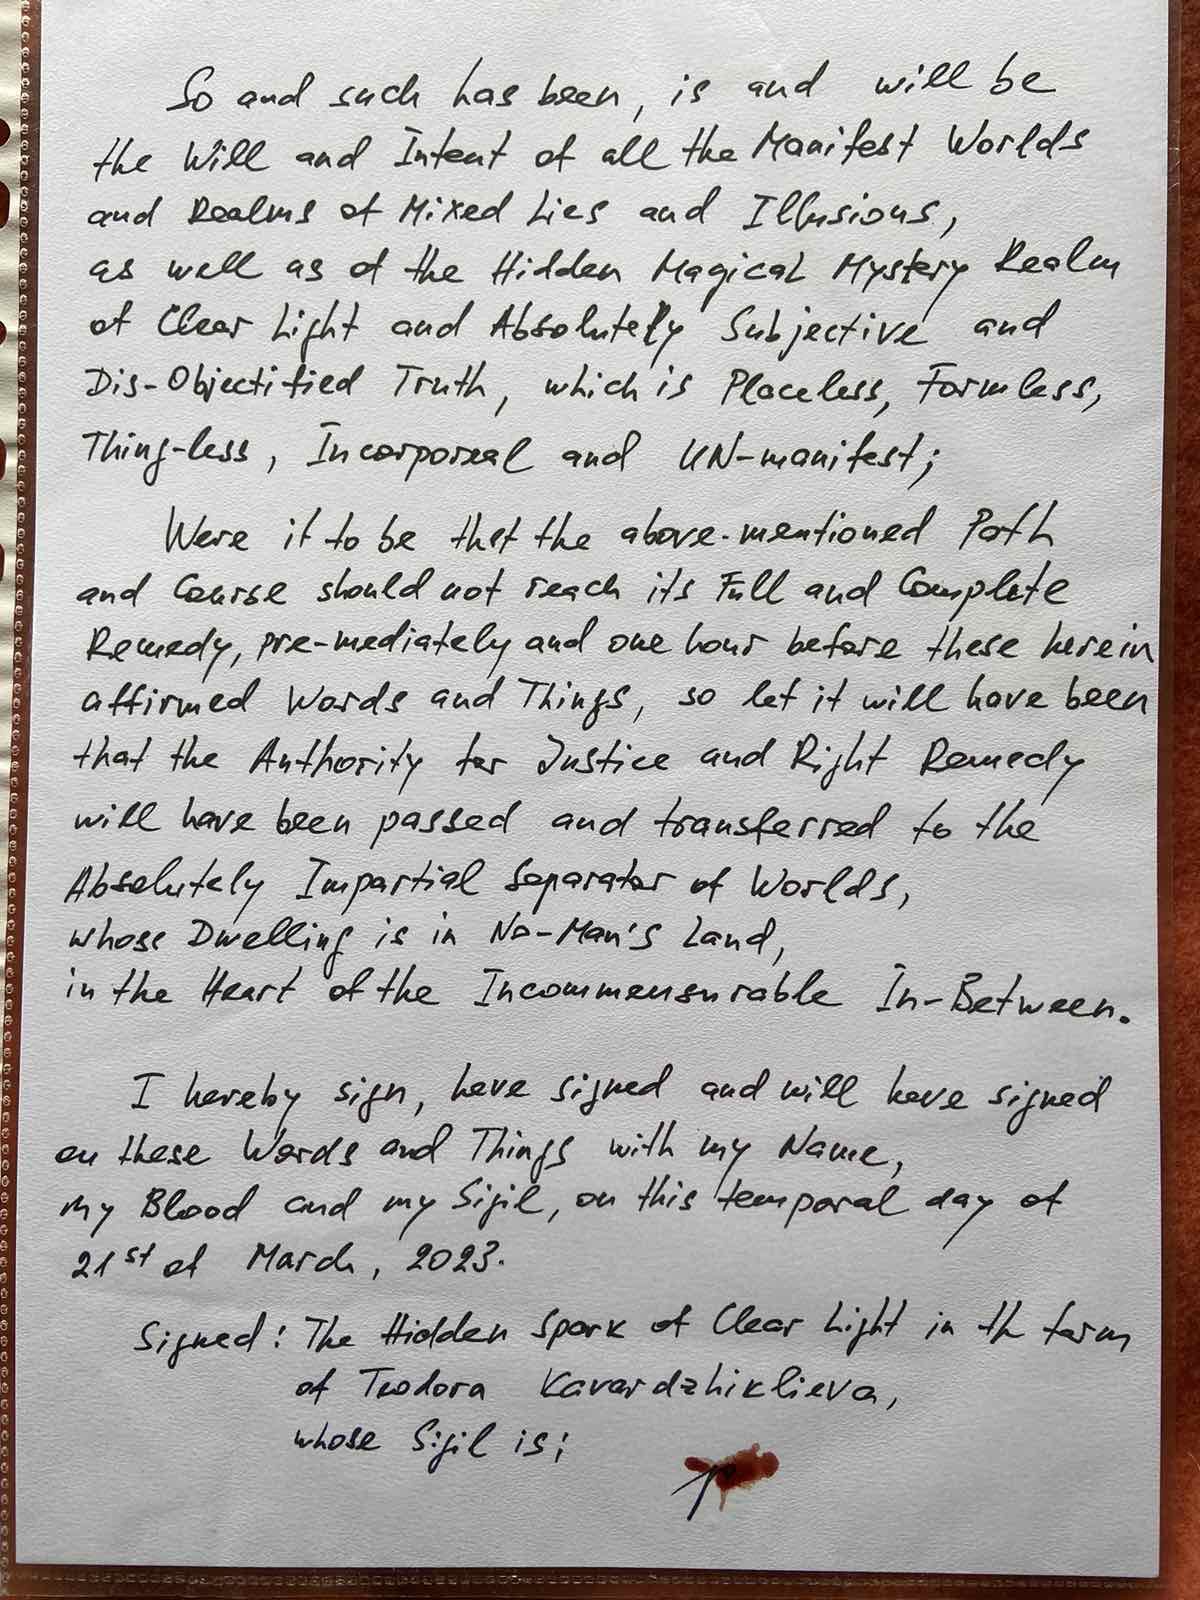 So and such has been, is and will be
the Will and Intent of all the Manifest Worlds
and Realms of Mixed Lies and Illusions,
as well as of the Hidden Magical Mystery Realm
of Clear Light and Absolutely Subjective and
Dis-Objectified Truth, which is Placeless, Formless,
Thing-less, Incorporeal and UN-manifest;
Were it to be that the above-mentioned Path
and Course should not reach its Full and Complete
Remedy, pre-mediately and one hour before these herein
affirmed Words and Things, so let it will have been
that the Authority for Justice and Right Remedy
will have been passed and transferred to the
Absolutely Impartial Separator of Worlds,
whose Dwelling is in No-Man's Land,
in the Heart of the Incommensurable In-Between.
I hereby sign, have signed and will have signed
on these Words and Things with my Name,
my Blood and my Sigil, on this temporal day of
21st of March, 2023.
Signed: The Hidden Spark of Clear Light in th form
of Teodora Kavardzhiklieva,
whose Sigil is: